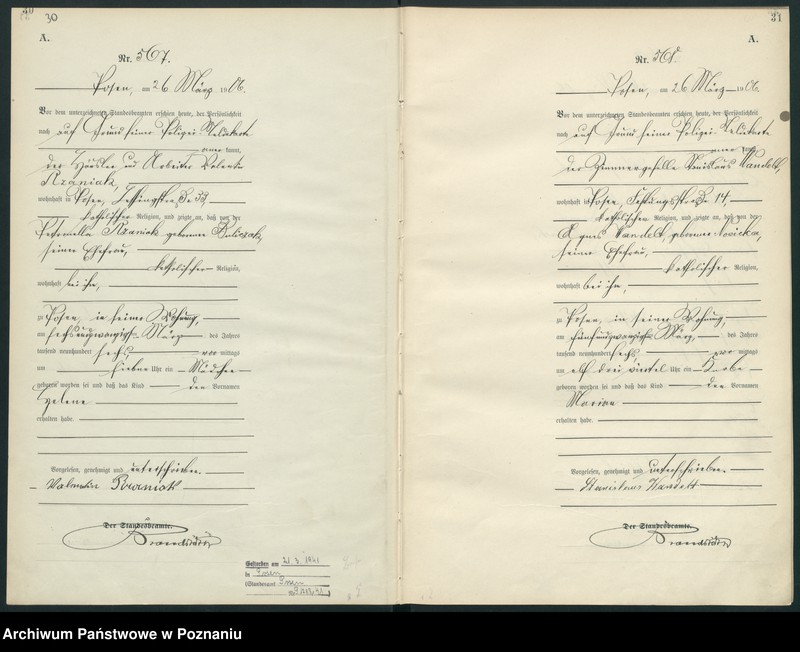 30
A.
Nr. 567.
Posen, am 26 März 1906.
Vor dem unterzeichneten Standesbeamten erschien heute, der Persönlichkeit
nach auf Grund seiner Polizei-Meldekarte
kannt,
der Häusler und Arbeiter Valentin
wohnhaft in Posen,
katholischer Religion, und zeigte an, daß von der
Petronella geborene
seiner Ehefrau,
katholischer Religion,
wohnhaft bei ihm,
zu Posen, in seiner Wohnung,
am sechsundzwanzigsten März des Jahres
tausend neunhundert sechs vor mittags
um sieben Uhr ein Mädchen
geboren worden sei und daß das Kind den Vornamen
Helene
erhalten habe.
Vorgelesen, genehmigt und unterschrieben.
Valentin
Der Standesbeamte.
Gestorben am 21 3. 1941
in Posen
(Standesamt Posen
31
A.
Nr. 568.
Posen, am 26 März 1906.
Vor dem unterzeichneten Standesbeamten erschien heute, der Persönlichkeit
nach auf Grund seiner Polizei-Meldekarte
kannt,
der Zimmergeselle Stanislaus Wandelt,
wohnhaft in Posen, 14,
katholischen Religion, und zeigte an, daß von der
Agnes Wandelt, geborene
seiner Ehefrau,
katholischer Religion,
wohnhaft bei ihm,
zu Posen, in seiner Wohnung,
am fünfundzwanzigsten März, des Jahres
tausend neunhundert sechs, mittags
um elf dreiviertel Uhr ein Knabe
geboren worden sei und daß das Kind den Vornamen
Marian
erhalten habe.
Vorgelesen, genehmigt und unterschrieben.
Stanislaus Wandelt
Der Standesbeamte.
Archiwum Państwowe w Poznaniu